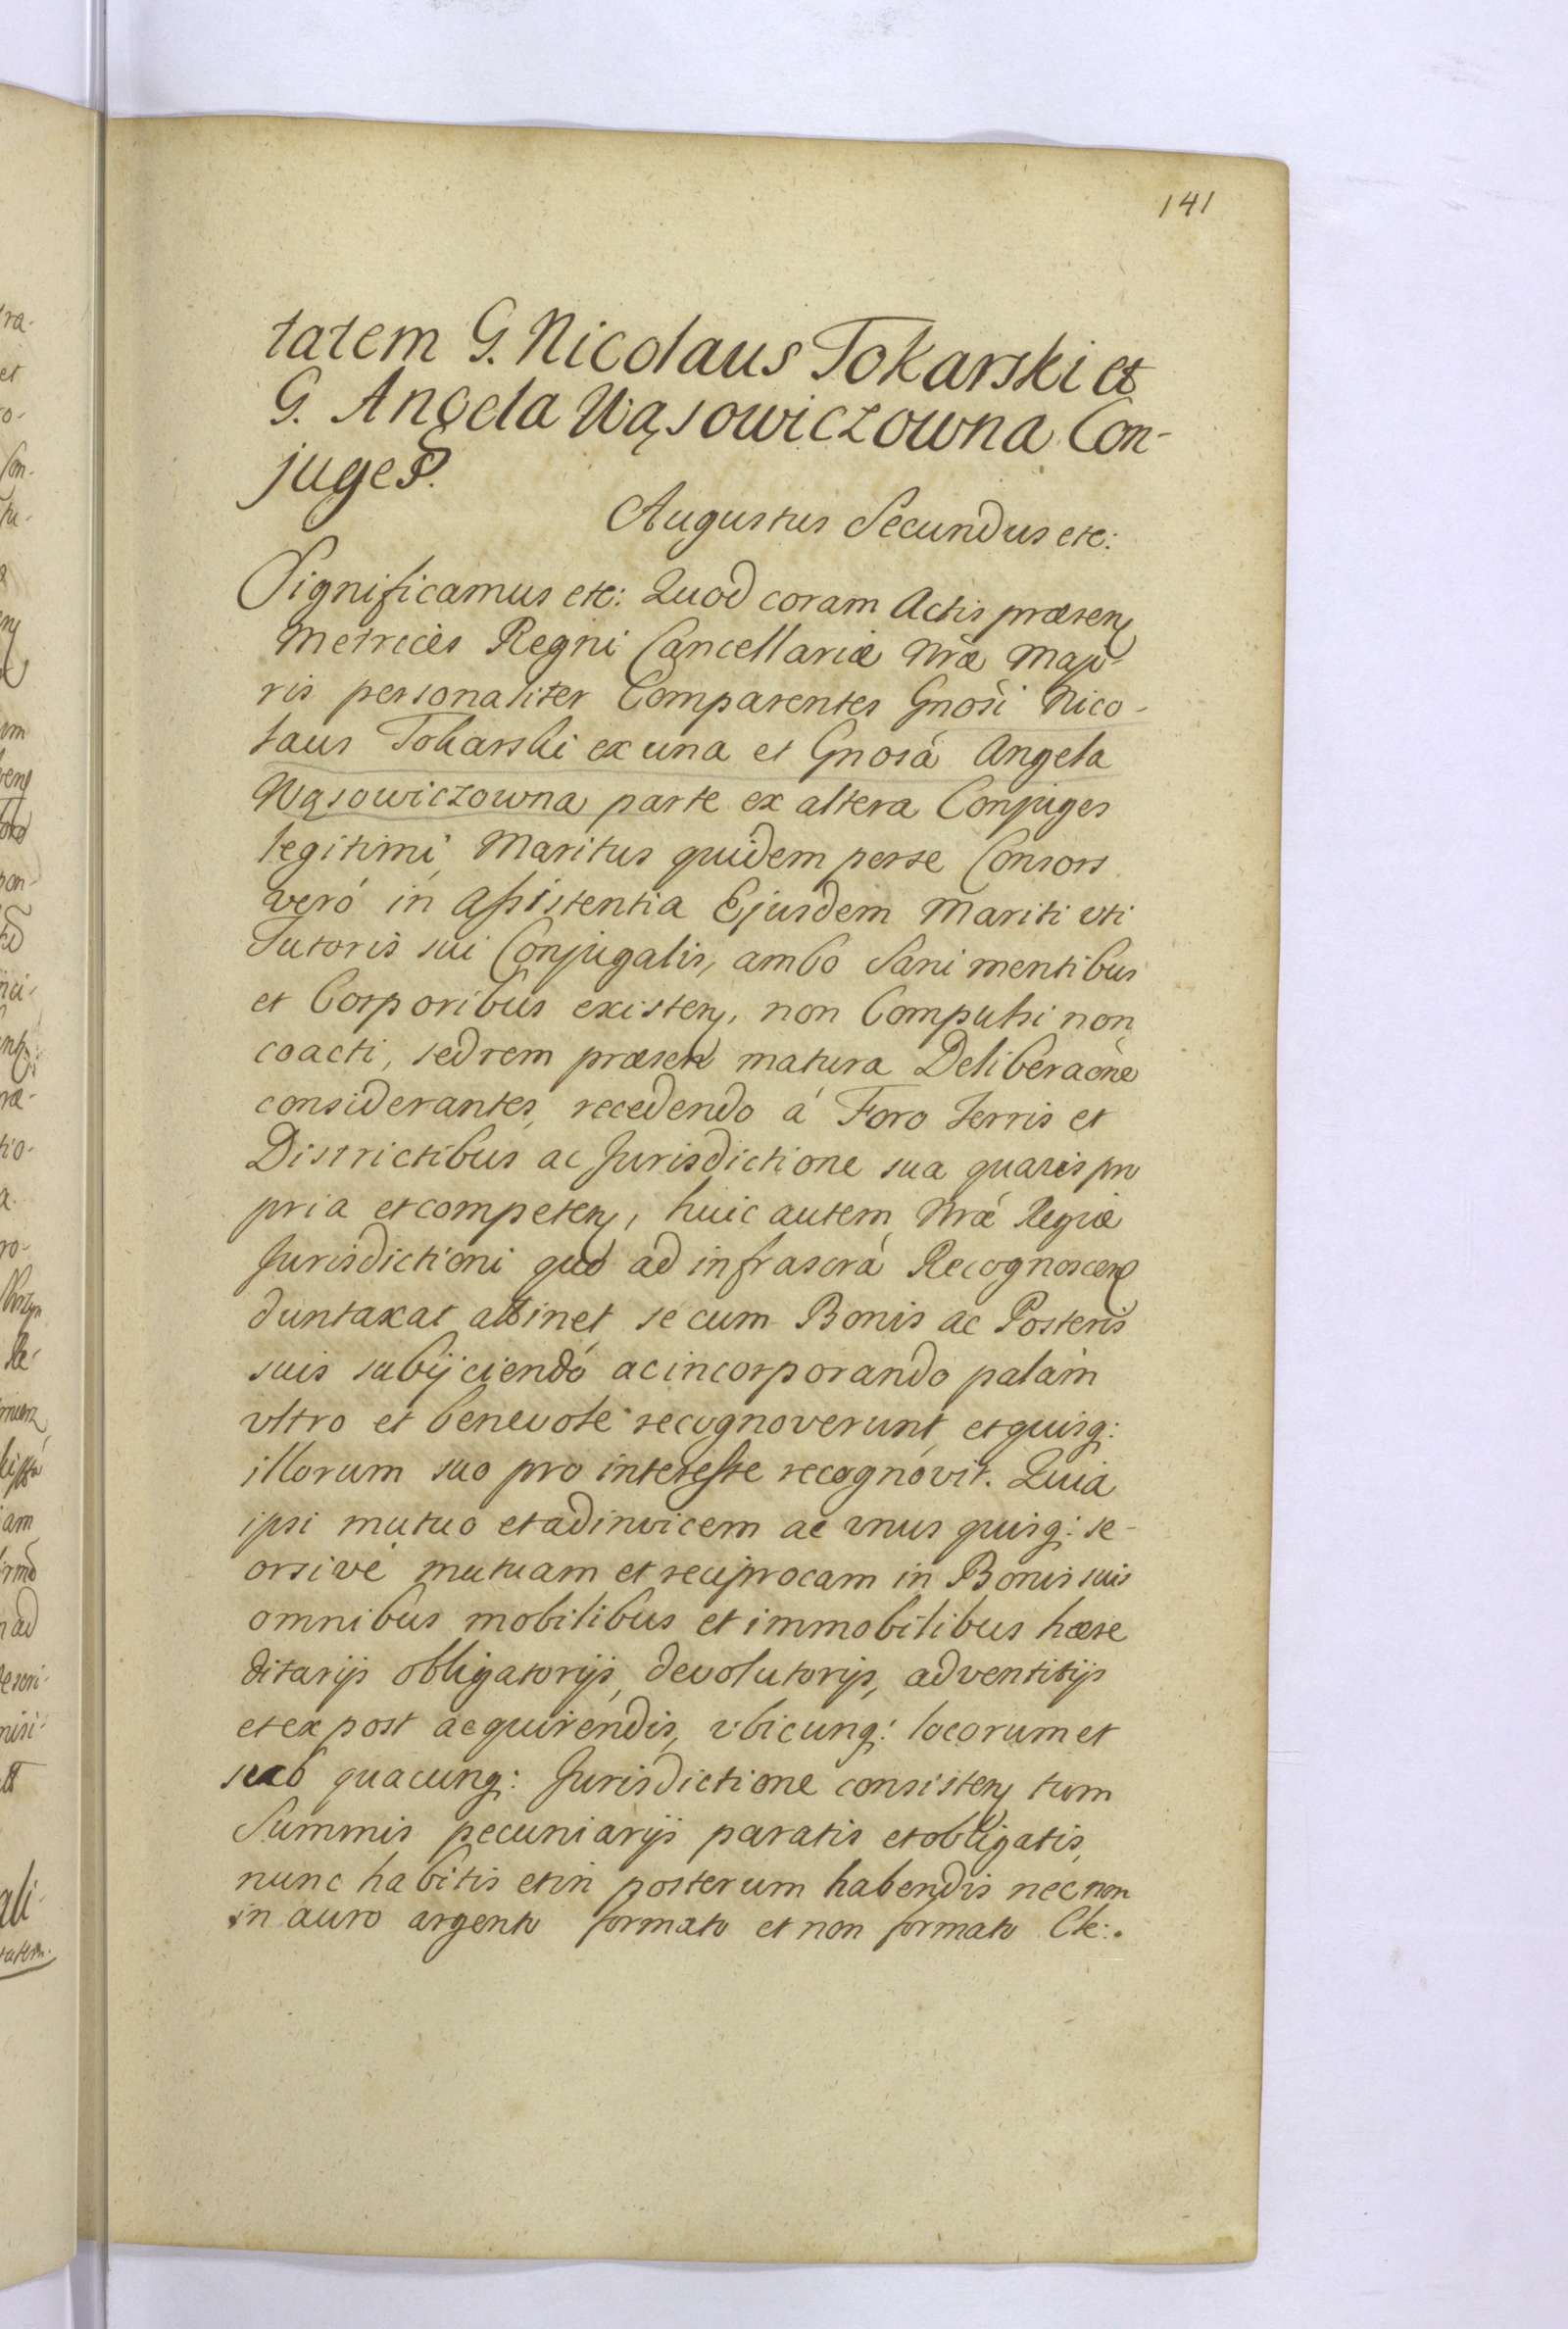 141
tatem G. Nicolaus Tokarski et
G. Angela Wąsowiczowna Con-
juges.
Augustus Secundus etc:
Significamus etc: Quod coram Actis præsen
Metrices Regni Cancellariæ Nræ Majo-
ris personaliter Comparentes Gnosi Nico-
laus Tokarski ex una et Gnosa Angela
Wąsowiczowna parte ex altera Conjuges
legitimi, Maritus quidem per se Consors
veró in Assistentia Ejusdem Mariti uti
Tutoris sui Conjugalis, ambo Sani mentibus
et Corporibus existen, non Compulsi non
coacti, sed rem præsen matura Deliberaõne
considerantes, recedendo á Foro Terris et
Districtibus ac Jurisdictione sua quavis pro
pria et competen, huic autem Nræ Regiæ
Jurisdictioni quo ad infrascra Recognoscen
duntaxat attinet se cum Bonis ac Posteris
suis subijciendó ac incorporando palam
ultro et benevole recognoverunt et quisq:
illorum suo pro interesse recognovit. Quia
ipsi mutuo et adinvicem ac unus quisq: se-
orsivé mutuam et reciprocam in Bonis suis
omnibus mobilibus et immobilibus hære
ditarijs obligatorijs, devolutorijs, adventitijs
et ex post acquirendis, ubicunq: locorum et
sub quacunq: Jurisdictione consisten tum
Summis pecuniarijs paratis et obligatis,
nunc habitis et in posterum habendis nec non
in auro argento formato et non formato Cle:.